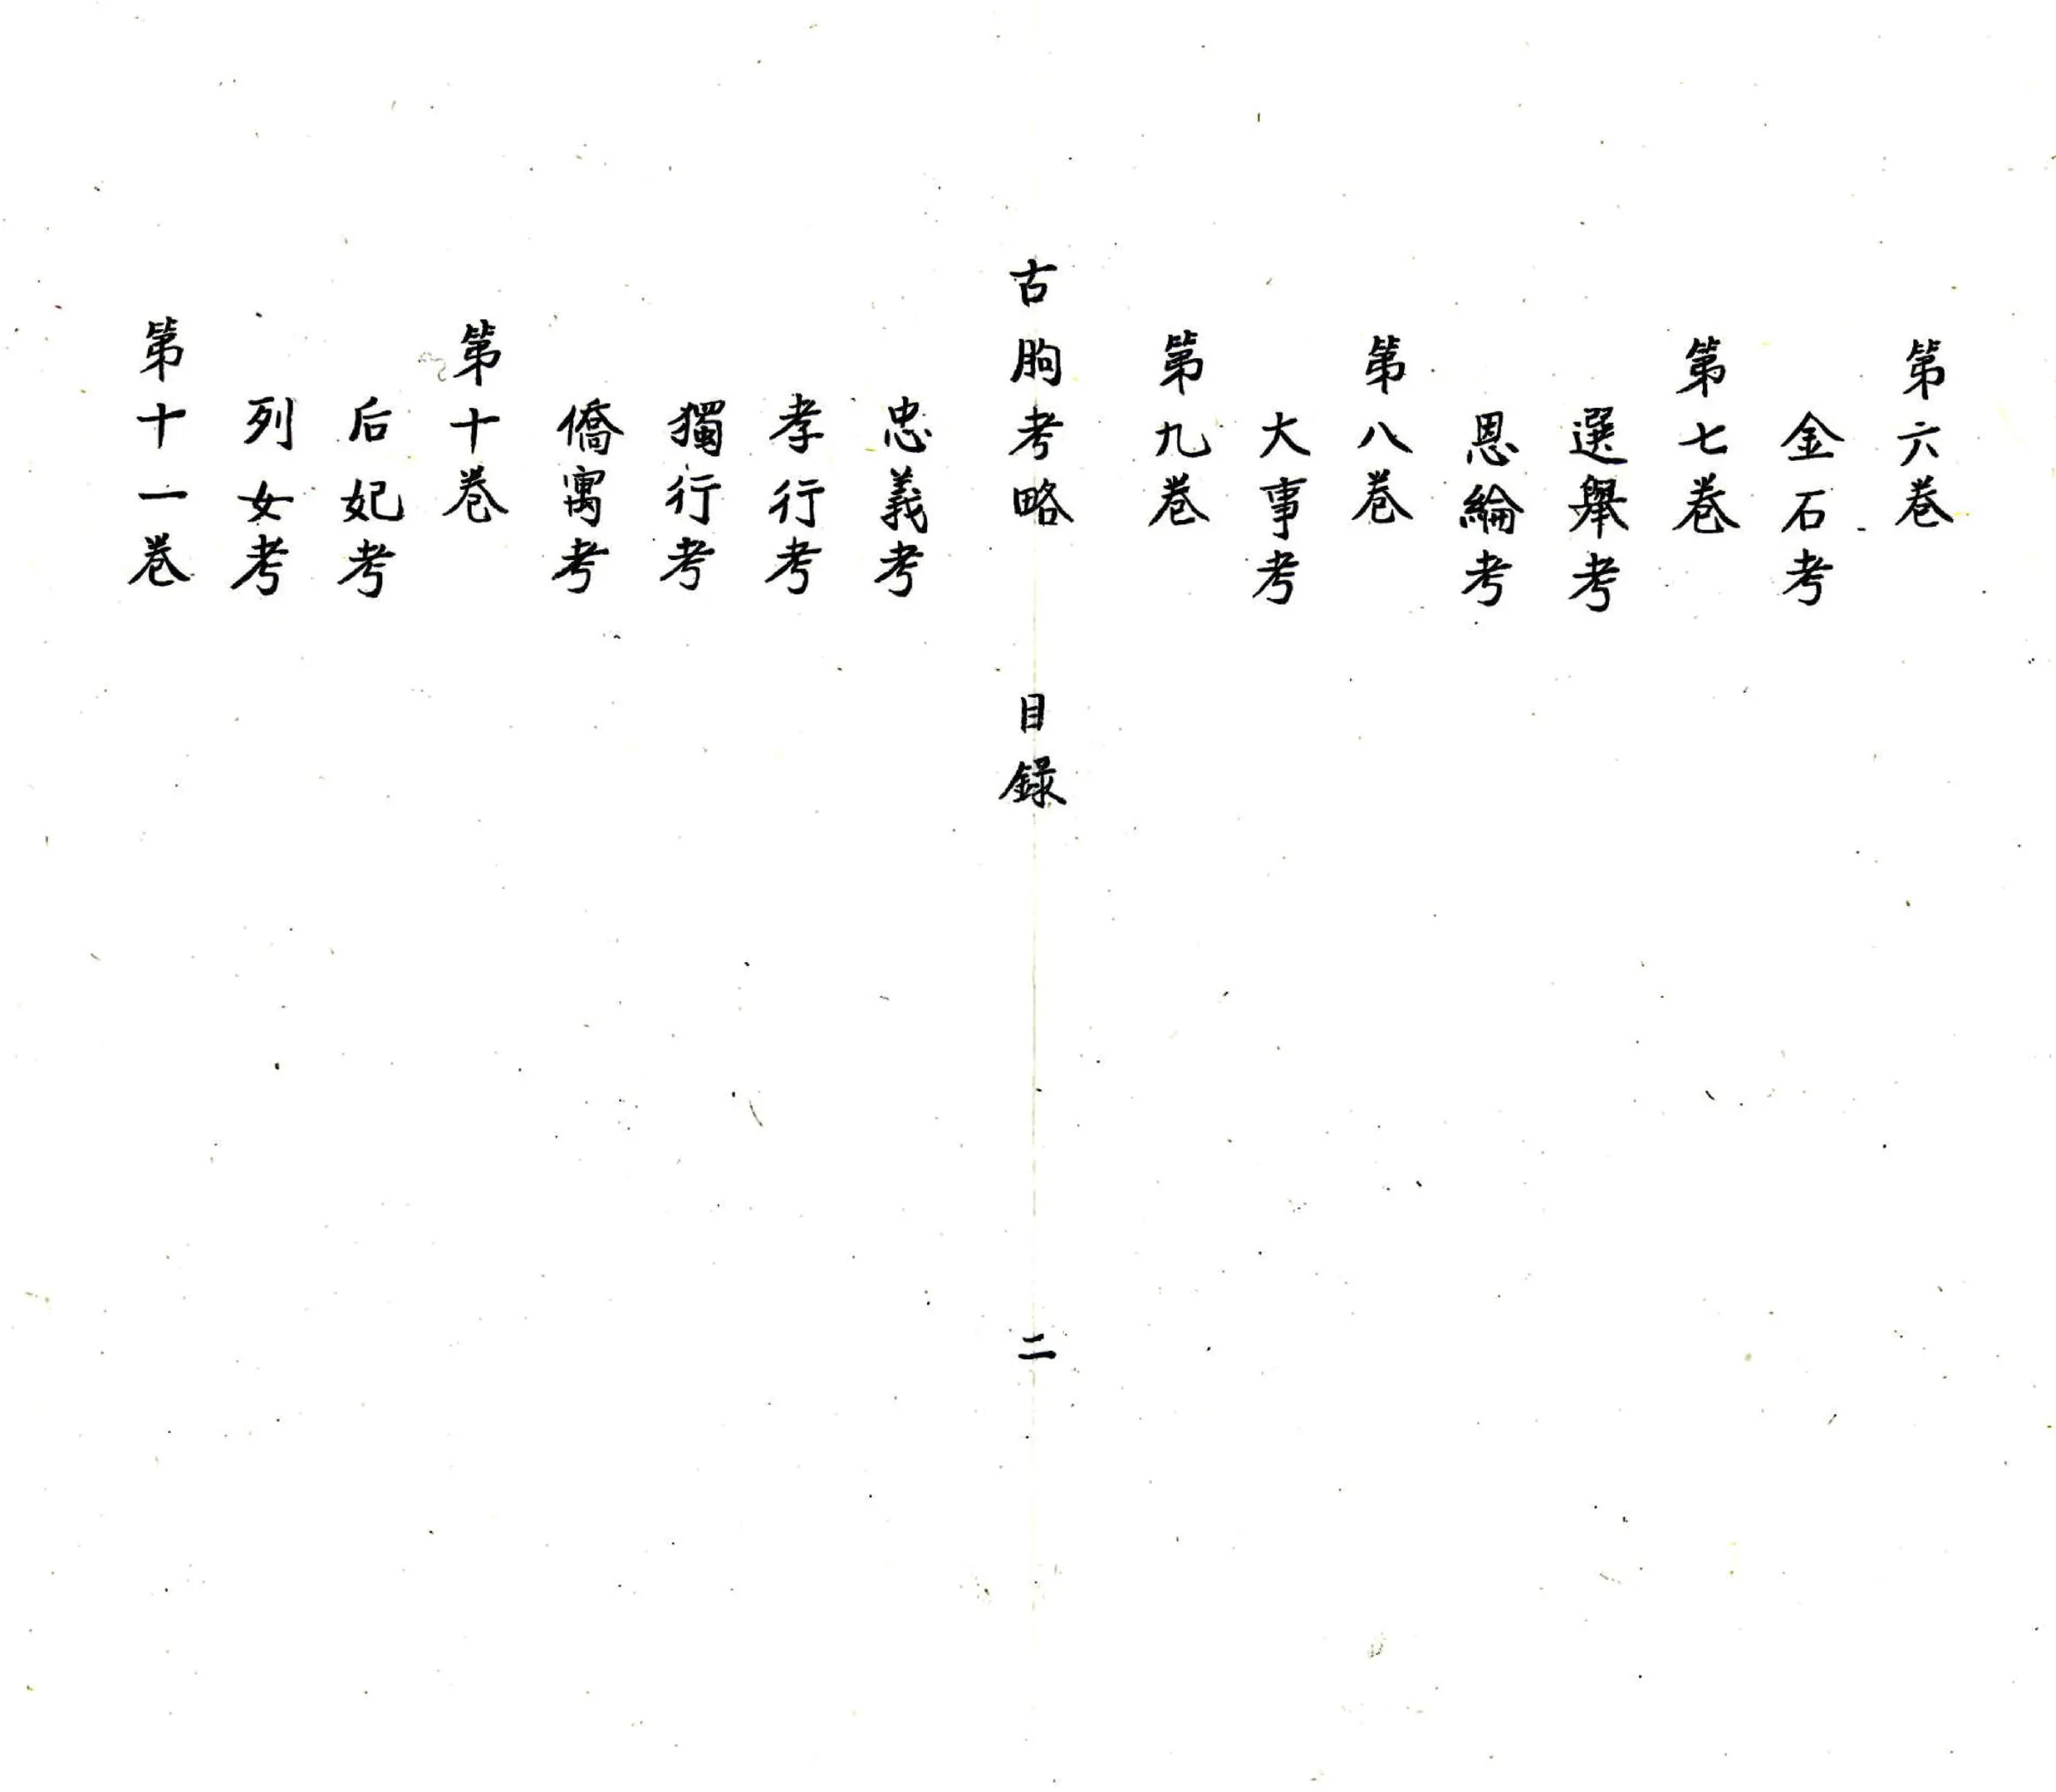 第六卷
金石考
第七卷
選舉考
恩綸考
第八卷
大事考
第九卷
古朐考略 目錄 二
忠義考
孝行考
獨行考
僑寓考
第十卷
后妃考
列女考
第十一卷